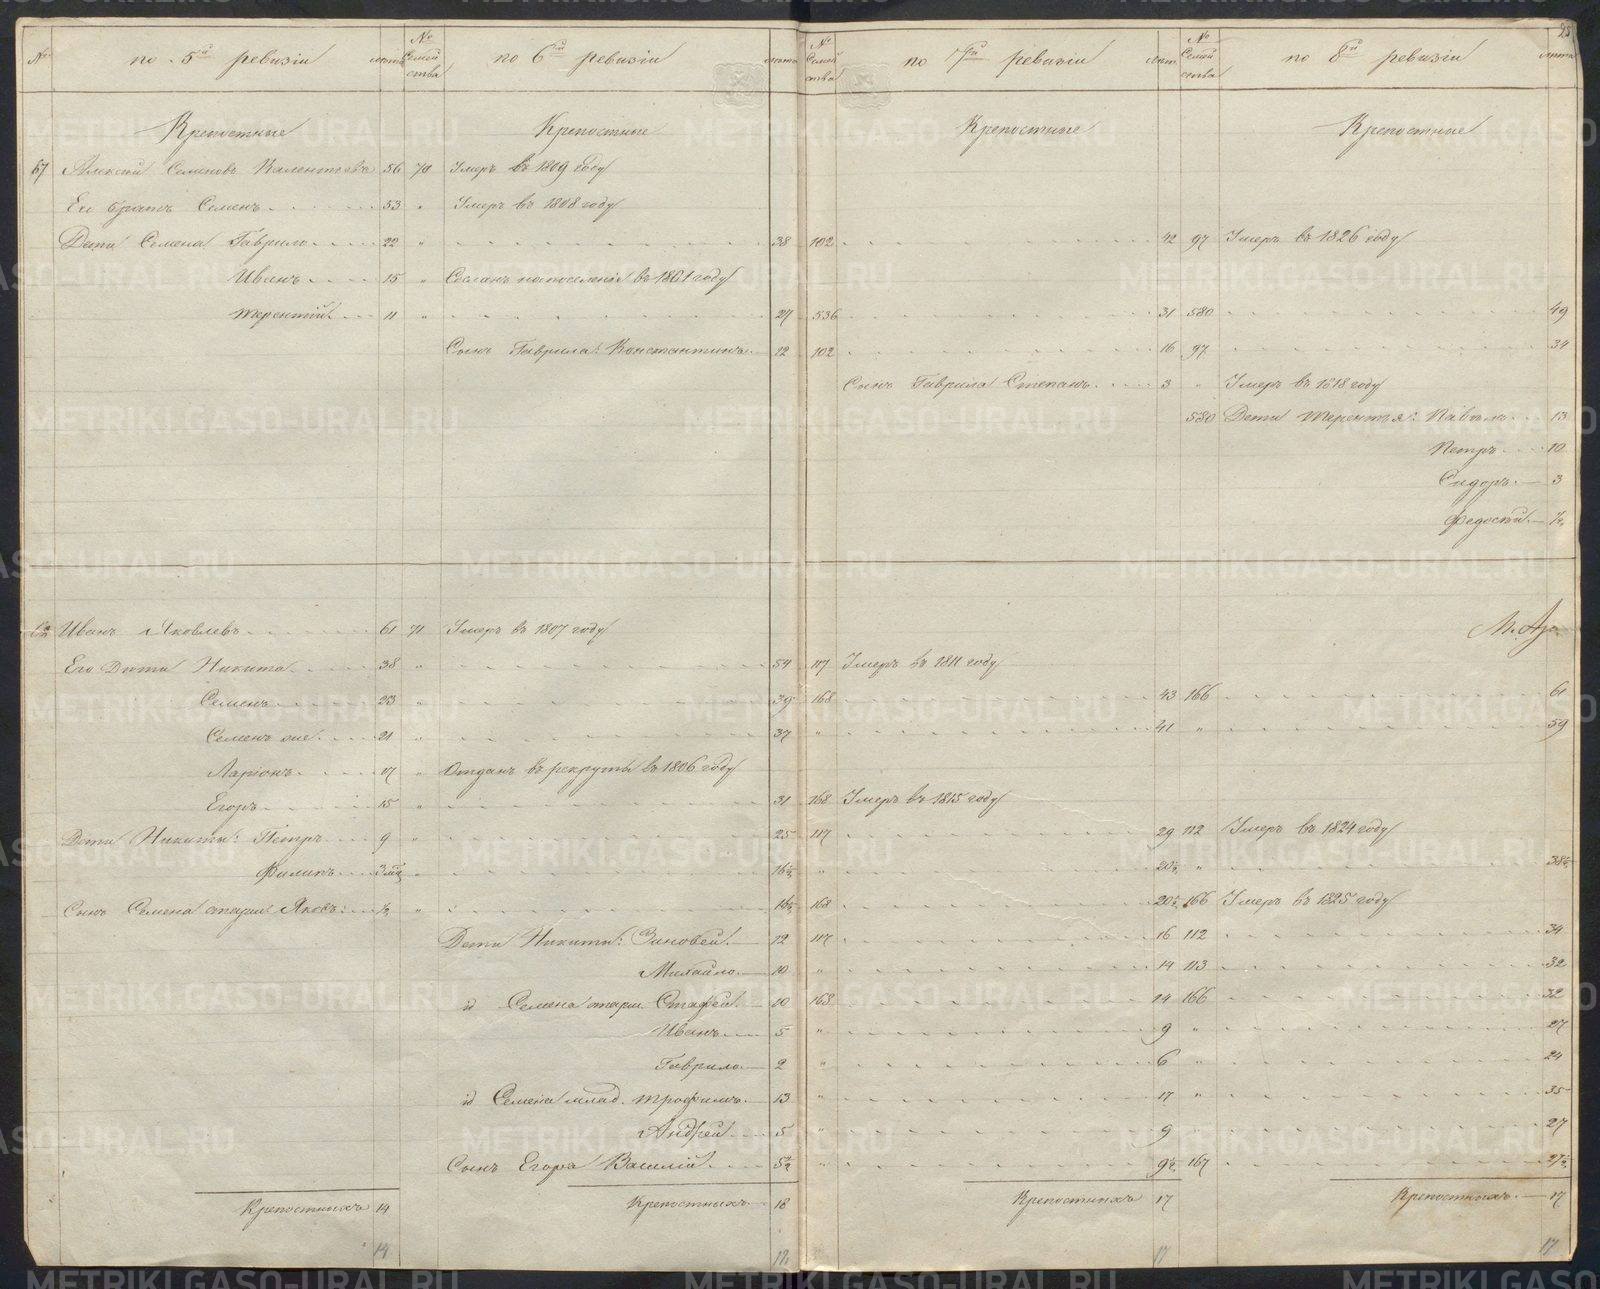 23
№ по 5й ревизіи лета № Семей ства по 6й ревизіи лета № Семей ства по 7й ревизіи лет № Семей ства по 8й ревизіи лета
Крепостные Крепостные Крепостные Крепостные
67 Алексей Семеновъ 56 70 Умеръ въ 1809 году
Его братъ Семенъ 53 " Умеръ въ 1808 году
Дети Семена Гаврило 22 " 38 102 42 97 Умеръ въ 1826 году
Иванъ 15 " Сосланъ на поселеніе въ 1801 году
Терентій 11 " 27 536 31 580 49
Сынъ Гаврила: Константинъ 12 102 16 97 34
Сынъ Гаврила Степанъ 3 " Умеръ въ 1818 году
580 Дети Терентья: Павелъ 13
Петръ 10
Сидоръ 3
Федосей ½
Иванъ Яковлевъ 61 71 Умеръ въ 1807 году
Его Дети Никита 38 " 54 117 Умеръ въ 1811 году
Семенъ 23 " 39 168 43 166 61
Семенъ же 21 " 37 " 41 " 59
Ларіонъ 17 " Отданъ въ рекруты въ 1806 году
Егоръ 15 " 31 168 Умеръ въ 1815 году
Дети Никиты: Петръ 9 " 25 117 29 112 Умеръ въ 1824 году
Филипъ 3 " 16½ " 20½ " 38½
Сынъ Семена старш Яковъ: ½ " 16½ 168 20½ 166 Умеръ въ 1825 году
Дети Никиты: Зиновей 12 117 16 112 34
Михайло 10 " 14 113 32
и Семена старш Стафей 10 168 14 166 32
Иванъ 5 " 9 " 27
Гаврило 2 " 6 " 24
и Семена млад. Трофимъ 13 " 17 " 35
Андрей 5 " 9 " 27
Сынъ Егора Василій 5½ " 9½ 167 27½
Крепостныхъ 14 Крепостныхъ 18 Крепостныхъ 17 Крепостныхъ 17
14 18 17 17
METRIKI.GASO-URAL.RU